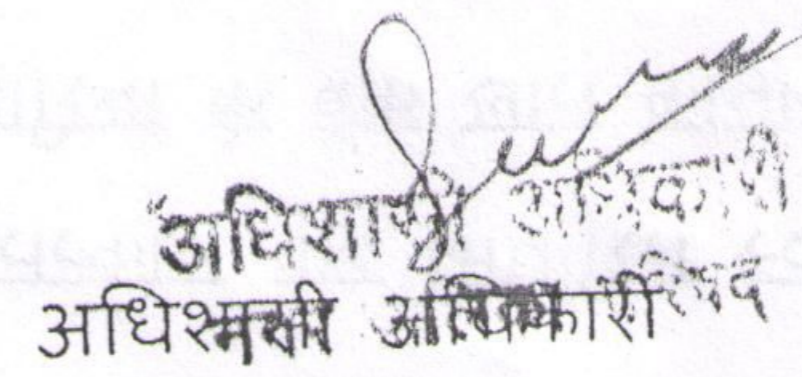 अधिशासी अधिकारी
अधिशासी अधिकारी